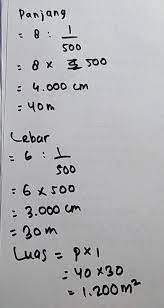 Panjang
= 8 : 1/500
= 8 x 500
= 4.000 cm
= 40 m
Lebar
= 6 : 1/500
= 6 x 500
= 3.000 cm
= 30 m
Luas = p x l
= 40 x 30
= 1.200 m²